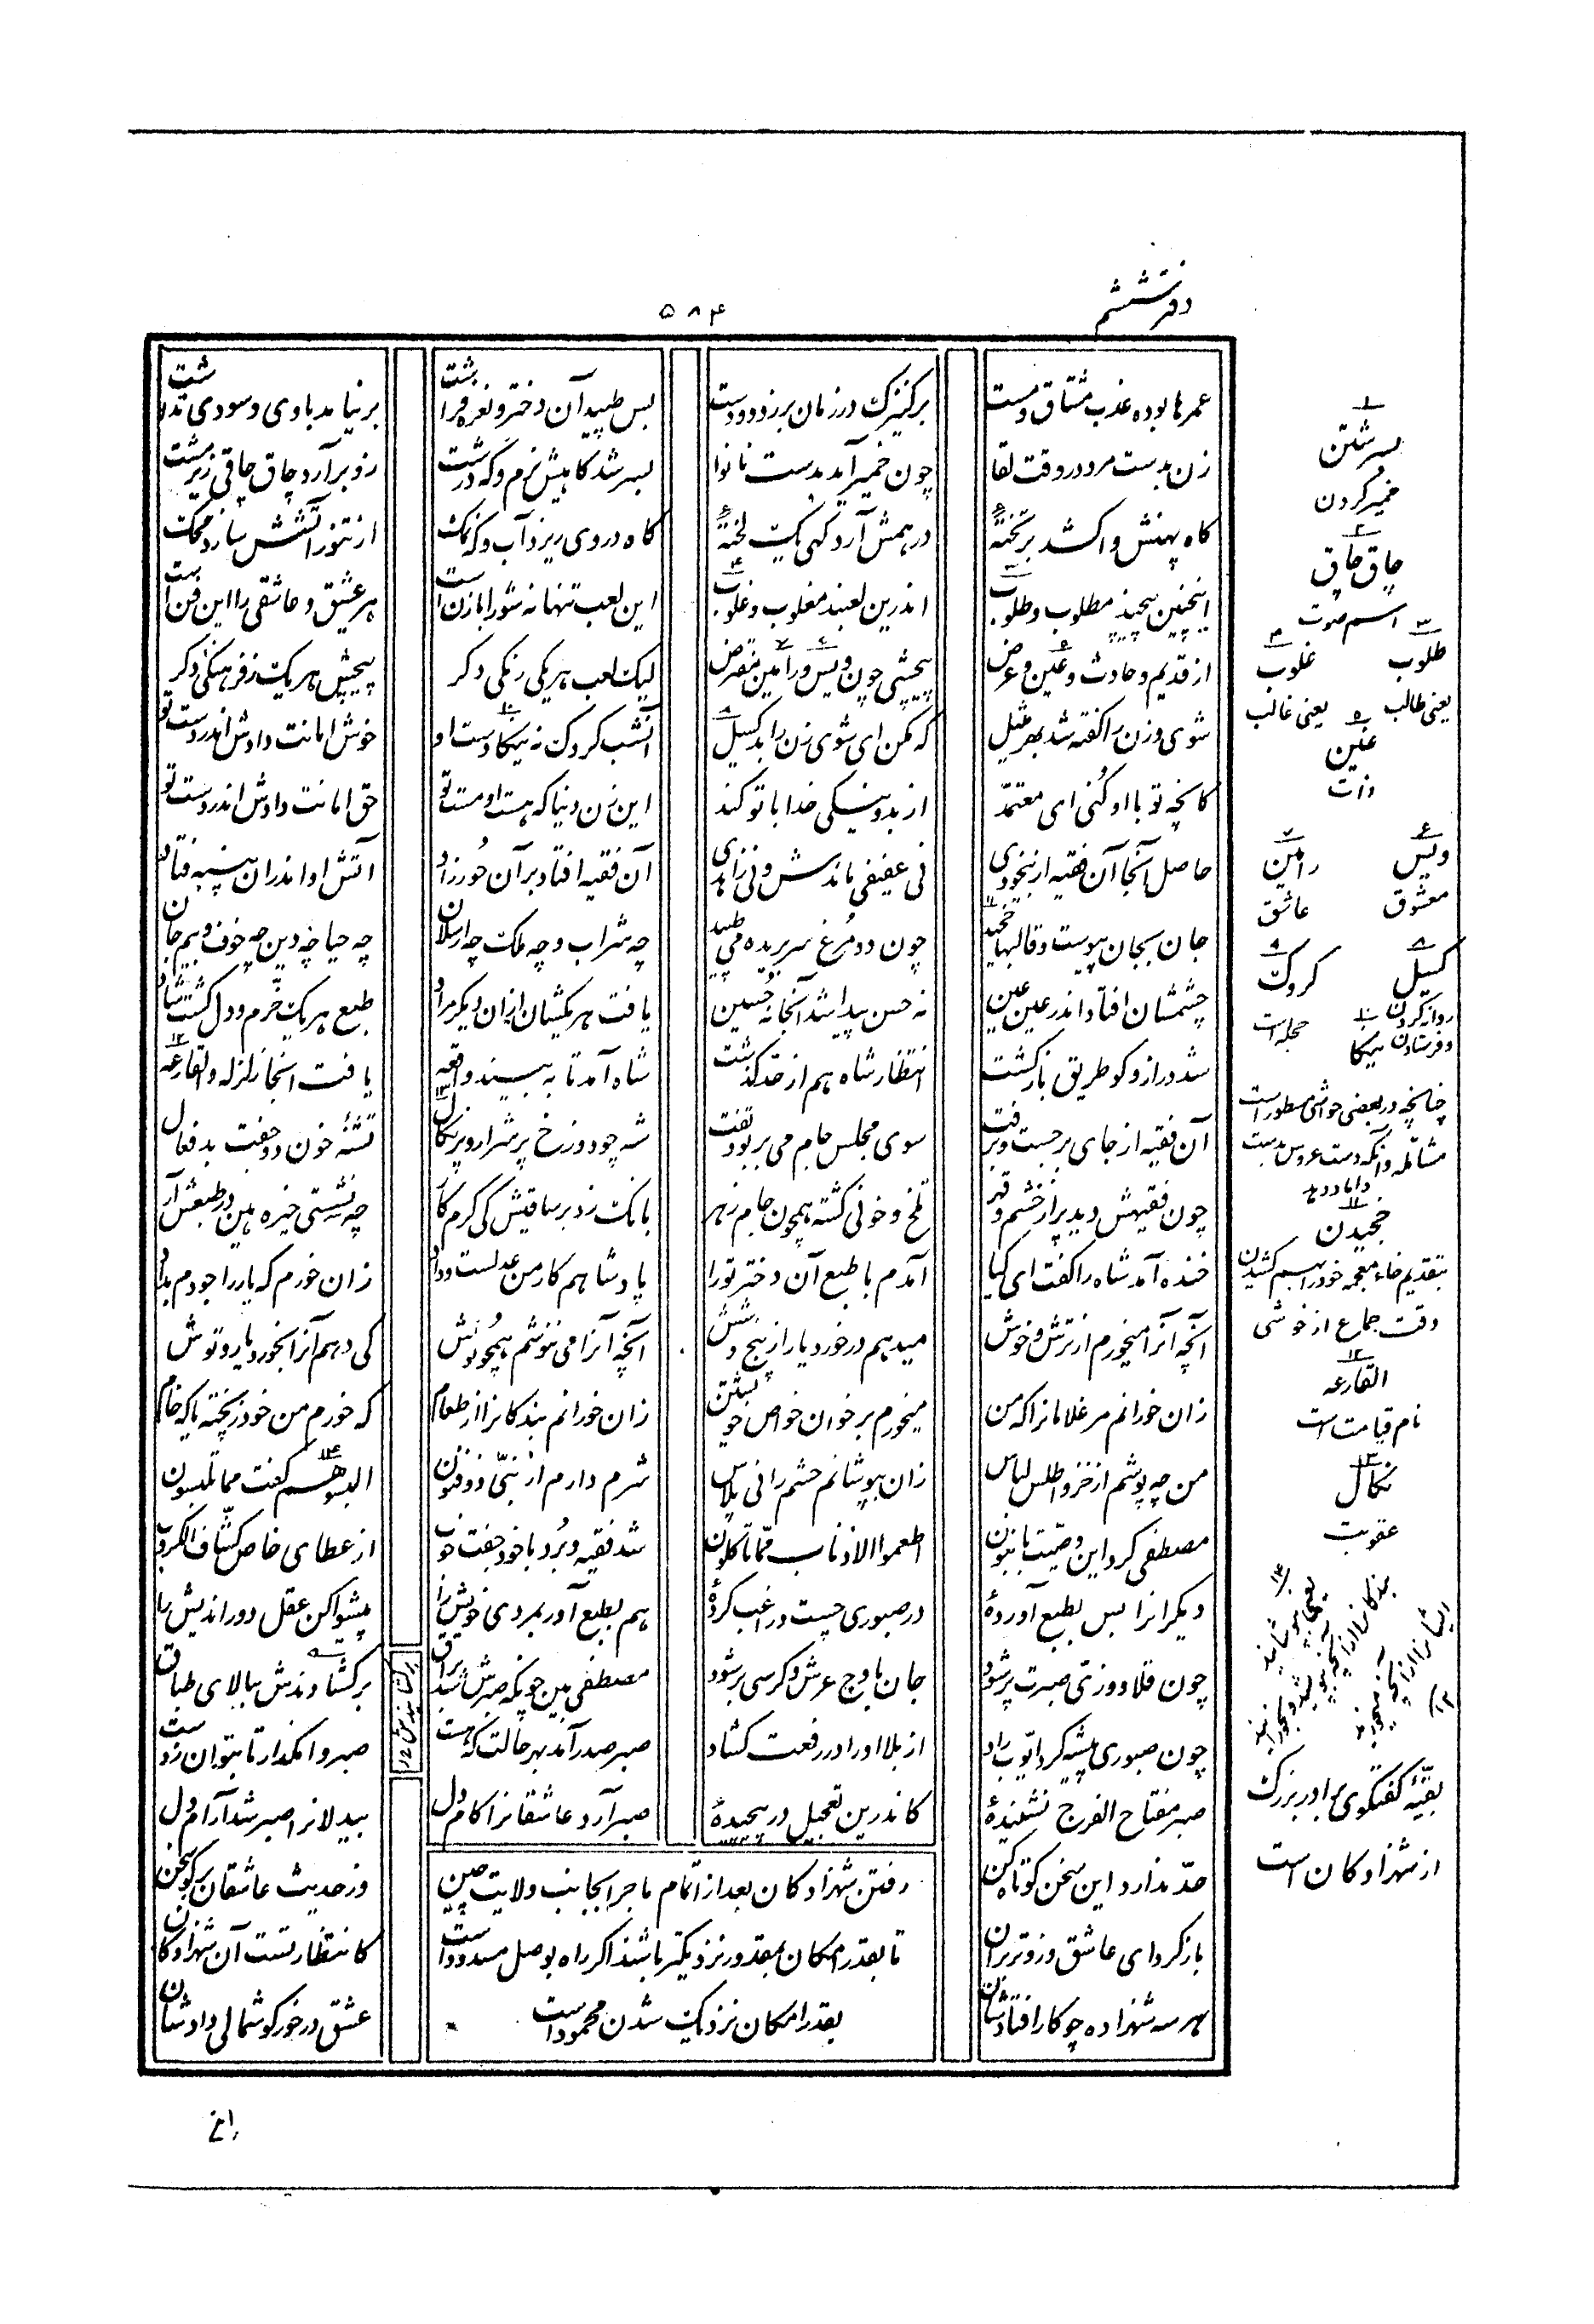 دفتر ششم
۵۸۴
عمرها بوده عزب مشتاق و مست
بر کنیزک در زمان بر زد دو دست
بس طپید آن دختر و نعره فراشت
بر نیامد با وی و سودی نداشت
زن بدست مرد در وقت لقا
چون خمیر آمد بدست نانوا
بسرشد گاهیش نرم و گه درشت
زو بر آرد چاق چاقی زیر مشت
گاه پهنش واکشد بر تختهٔ
در همش آرد گهی یک لختهٔ
گاه در وی ریزد آب و گه نمک
از تنور آتشش سازد محک
اینچنین پیچند مطلوب و طلوب
اندرین لعبند مغلوب و غلوب
این لعب تنها نه شو را با زن است
هر عشیق و عاشقی را این فن است
از قدیم و حادث و عین و عرض
پیچشی چون ویس و رامین مفترض
لیک لعب هر یکی رنگی دگر
پیچش هر یک ز فرهنگی دگر
شوی و زن را گفته شد بهر مثیل
که مکن ای شوی زن را بد گسیل
آنشب گردک نه ینگا دست او
خوش امانت دادش اندر دست تو
کانچه تو با او کنی ای معتمد
از بد و نیکی خدا با تو کند
این زن دنیا که هست او مست تو
حق امانت دادش اندر دست تو
حاصل آنجا آن فقیه از بیخودی
نی عفیفی ماندش و نی زاهدی
آن فقیه افتاد بر آن حورزاد
آتش او اندران پنبه فتاد
جان بجان پیوست و قالبها خجید
چون دو مرغ سربریده می طپید
چه شراب و چه ملک چه ارسلان
چه حیا چه دین چه خوف و بیم جان
چشمشان افتاد اندر عین و غین
نه حسن پیدا شد آنجا نه حسین
یافت هر یکشان ازان دیگر مراد
طبع هر یک خرم و دل گشت شاد
شد دراز و کو طریق بازگشت
انتظار شاه هم از حد گذشت
شاه آمد تا ببیند واقعه
یافت آنجا زلزله و القارعه
آن فقیه از جای بر جست و برفت
سوی مجلس جام می بربود تفت
شه چو دوزخ پر شرار و پر نکال
تشنهٔ خون دو جفت بد فعال
چون فقیهش دید پر از خشم و قهر
تلخ و خونی گشته همچون جام زهر
بانک زد بر ساقیش کی گرم کار
چه نشستی خیره هین در طبعش آر
خنده آمد شاه را گفت ای کیا
آمدم با طبع آن دختر تو را
پادشاهم کار من عدلست و داد
زان خورم که یار را جودم بداد
آنچه آنرا میخورم از ترش و خوش
میدهم در خورد یار از پنج و شش
آنچه آنرا می ننوشم همچو نوش
کی دهم آنرا بخورد یار و توش
زان خورانم مر غلامانرا که من
میخورم بر خوان خاص خویشتن
زان خورانم بندگانرا از طعام
که خورم من خود ز پخته یا که خام
من چه پوشم از خز و اطلس لباس
زان بپوشانم حشم را نی پلاس
شرم دارم از نبی ذو فنون
البسوهم گفت مما تلبسون
مصطفی کرد این وصیت با بنون
اطعموا الاذناب مما تاکلون
شد فقیه و برد با خود جفت خوب
از عطای خاص کشاف الکروب
دیگرانرا بس بطبع آوردهٔ
در صبوری چست و راغب کردهٔ
هم بطبع آور بمردی خویش را
پیشوا کن عقل دور اندیش را
چون قلاووزی صبرت پر شود
جان باوج عرش و کرسی بر شود
مصطفی بین چونکه صبرش شد براق
بر کشاندش ببالای طباق
چون صبوری پیشه کرد ایوب راد
از بلا او را در رفعت گشاد
صبر صدر آمد بهر حالت که هست
صبر وامگذار تا بتوان زدست
صبر مفتاح الفرج نشنیدهٔ
کاندرین تعجیل در پیچیدهٔ
صبر آرد عاشقانرا کام دل
بیدلانرا صبر شد آرام دل
حد ندارد این سخن کوتاه کن
وز حدیث عاشقان برگو سخن
رفتن شهزادگان بعد از اتمام ماجرا بجانب ولایت چین
تا بقدر امکان بمقصود نزدیکتر باشند اگر راه بوصل مسدود است
بقدر امکان نزدیک شدن محمود است
باز گرد ای عاشق و زوتر بران
کانتظار تست آن شهزادگان
هر سه شهزاده چو کار افتادشان
عشق در خور گوشمالی دادشان
۱
بسرشتن
خمیر کردن
۲
چاق چاق
اسم صوت
۳
طلوب
یعنی طالب
۴
غلوب
یعنی غالب
۵
عین
ذات
۶
ویس
معشوق
۷
رامین
عاشق
۸
گسیل
روانه کردن و فرستادن
۹
گردک
حجله است
۱۰
ینگا
چنانچه در بعضی حواشی مسطور است
مشاطه و آنکه دست عروس بدست
داماد دهد
۱۱
خجیدن
بتقدیم خاء معجمه خود را بهم کشیدن
وقت جماع از خوشی
۱۲
القارعه
نام قیامت است
۱۳
نکال
عقوبت
۱۴
یعنی بپوشانید
بندگانرا از آنچه بپوشید و بخورانید
ایشانرا از آنچه میخورید
۱۲
بقیهٔ گفتگوی برادر بزرگ
از شهزادگان است